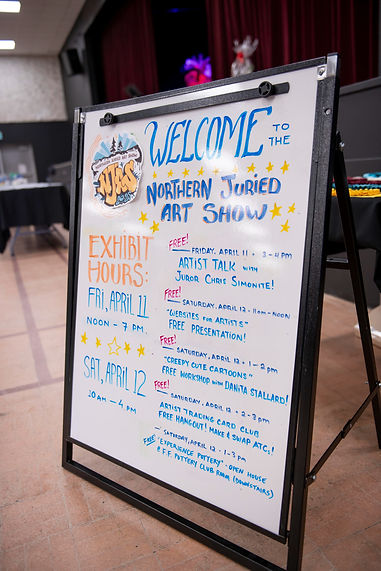 NORTHERN JURIED ART SHOW
NJAS
WELCOME TO THE
NORTHERN JURIED
ART SHOW
EXHIBIT
HOURS:
FRI, APRIL 11
NOON - 7 PM.
SAT, APRIL 12
10AM - 4 PM
FREE!
FRIDAY, APRIL 11 • 3-4PM
ARTIST TALK WITH
JUROR CHRIS SIMONITE!
FREE!
SATURDAY, APRIL 12 • 11AM-NOON
"WEBSITES FOR ARTISTS"
FREE PRESENTATION!
FREE!
SATURDAY, APRIL 12 • 1-2 PM
"CREEPY CUTE CARTOONS"
FREE WORKSHOP WITH DANITA STALLARD!
FREE!
SATURDAY, APRIL 12 • 2-3 PM
ARTIST TRADING CARD CLUB
FREE HANGOUT! MAKE & SWAP ATC'S!
FREE
SATURDAY, APRIL 12 • 1-3 PM
"EXPERIENCE POTTERY" • OPEN HOUSE
@ F.F. POTTERY CLUB ROOM (DOWNSTAIRS)